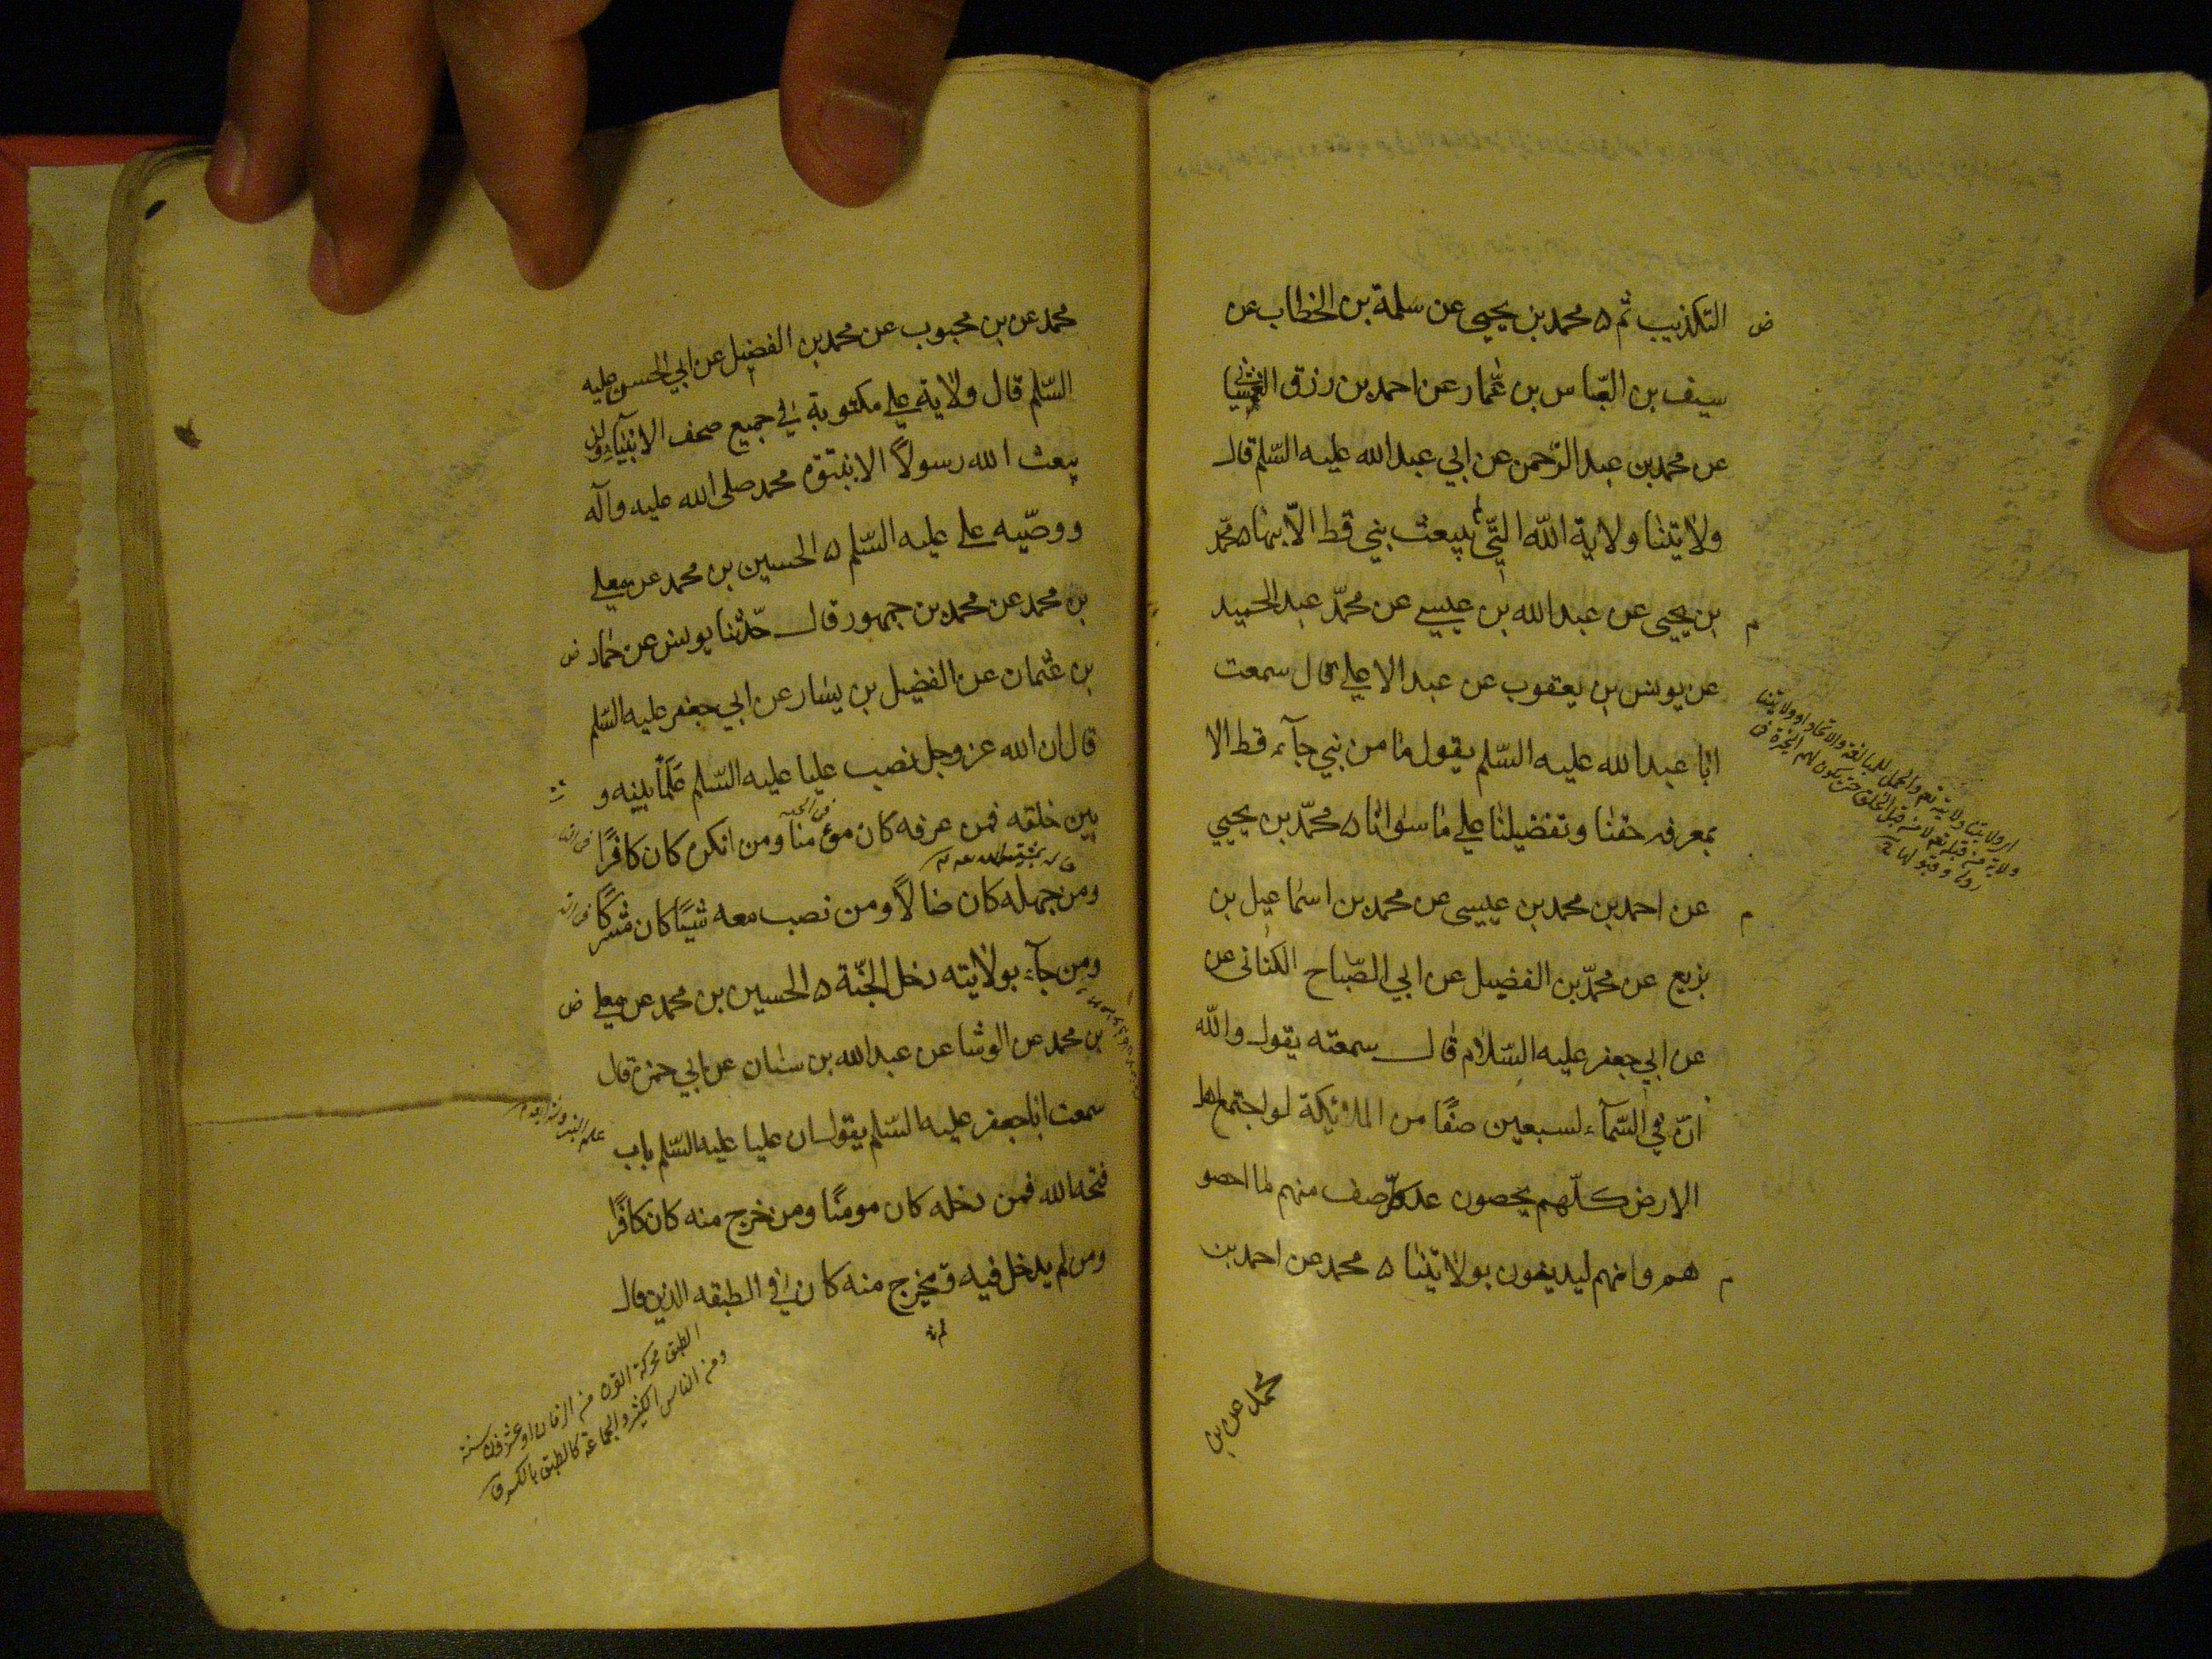 التكذيب ثم ه محمد بن يحيى عن سلمة بن الخطاب عن
ض
سيف بن العباس بن عمار عن احمد بن رزق
عن محمد بن عبد الرحمن عن ابي عبد الله عليه السلم قال
ولايتنا ولاية الله التي لم يبعث نبي قط الا بها ه محمد
بن يحيى عن عبد الله بن عيسى عن محمد عبد الحميد
م
عن يونس بن يعقوب عن عبد الاعلى قال سمعت
ابا عبد الله عليه السلم يقول ما من نبي جاء قط الا
بمعرفه حقنا وتفضيلنا على ما سوانا ه محمد بن يحيى
عن احمد بن محمد بن عيسى عن محمد بن اسماعيل بن
م
بزيع عن محمد بن الفضيل عن ابي الصباح الكناني عن
عن ابي جعفر عليه السلام قال سمعته يقول والله
ان في السماء لسبعين صفا من الملائيكة لو اجتمع اهل
الارض كلهم يحصون عدد كل صف منهم لما احصو
هم وانهم ليدينون بولايتنا ه محمد عن احمد بن
م
محمد عن بن
محمد عن بن محبوب عن محمد بن الفضيل عن ابي الحسن عليه
السلم قال ولاية علي مكتوبة في جميع صحف الانبياء ولن
يبعث الله رسولا الا بنبوة محمد صلى الله عليه وآله
ووصيه علي عليه السلم ه الحسين بن محمد عن معلى
بن محمد عن محمد بن جمهور قال حدثنا يونس عن حماد
ض
بن عثمان عن الفضيل بن يسار عن ابي جعفر عليه السلم
قال ان الله عز وجل نصب عليا عليه السلم علما بينه و
بين خلقه فمن عرفه كان مؤمنا ومن انكره كان كافرا
ومن جهله كان ضالا ومن نصب معه شيئا كان مشركا
ومن جاء بولايته دخل الجنة ه الحسين بن محمد عن معلى
ض
بن محمد عن الوشا عن عبد الله بن سنان عن ابي حمزة قال
سمعت ابا جعفر عليه السلم يقول ان عليا عليه السلم باب
فتحه الله فمن دخله كان مومنا ومن خرج منه كان كافرا
ومن لم يدخل فيه ولم يخرج منه كان في الطبقه الذين قال
الطبق محركة القرن من الزمان او عشرون سنة
ومن الناس الكثير والجماعة كالطبق بالكسر ق